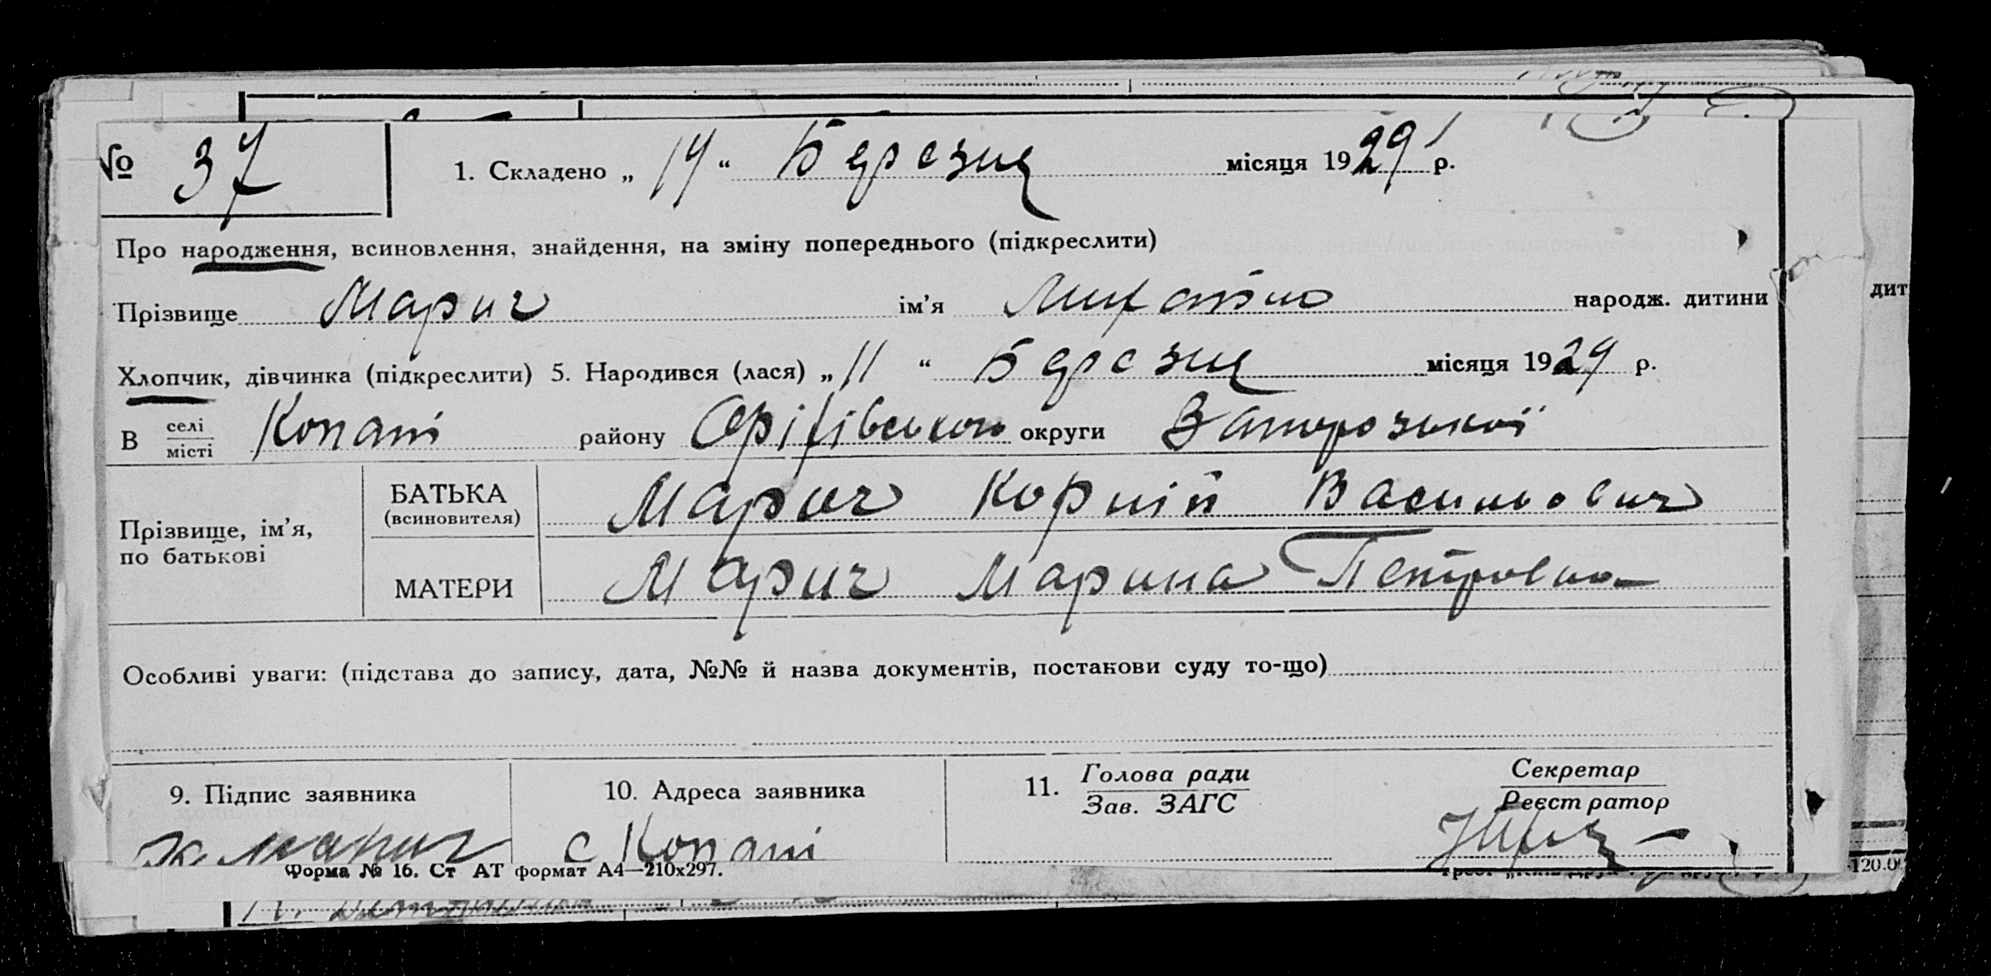 № 37 1. Складено „ 14 “ Березня місяця 1929 р.
Про народження, всиновлення, знайдення, на зміну попереднього (підкреслити)
Прізвище Марич ім'я Михайло народж. дитини
дит
Хлопчик, дівчинка (підкреслити) 5. Народився (лася) „ 11 “ Березня місяця 1929 р.
В селі місті Копані району Оріхівського округи Запорозької
Прізвище, ім'я, по батькові
БАТЬКА (всиновителя) Марич Корній Васильович
МАТЕРИ Марич Марина Петровна
Особливі уваги: (підстава до запису, дата, №№ й назва документів, постанови суду то-що)
9. Підпис заявника 10. Адреса заявника 11. Голова ради Зав. ЗАГС Секретар Реєстратор
К Марич с Копані
Форма № 16. Ст АТ формат А4—210х297.